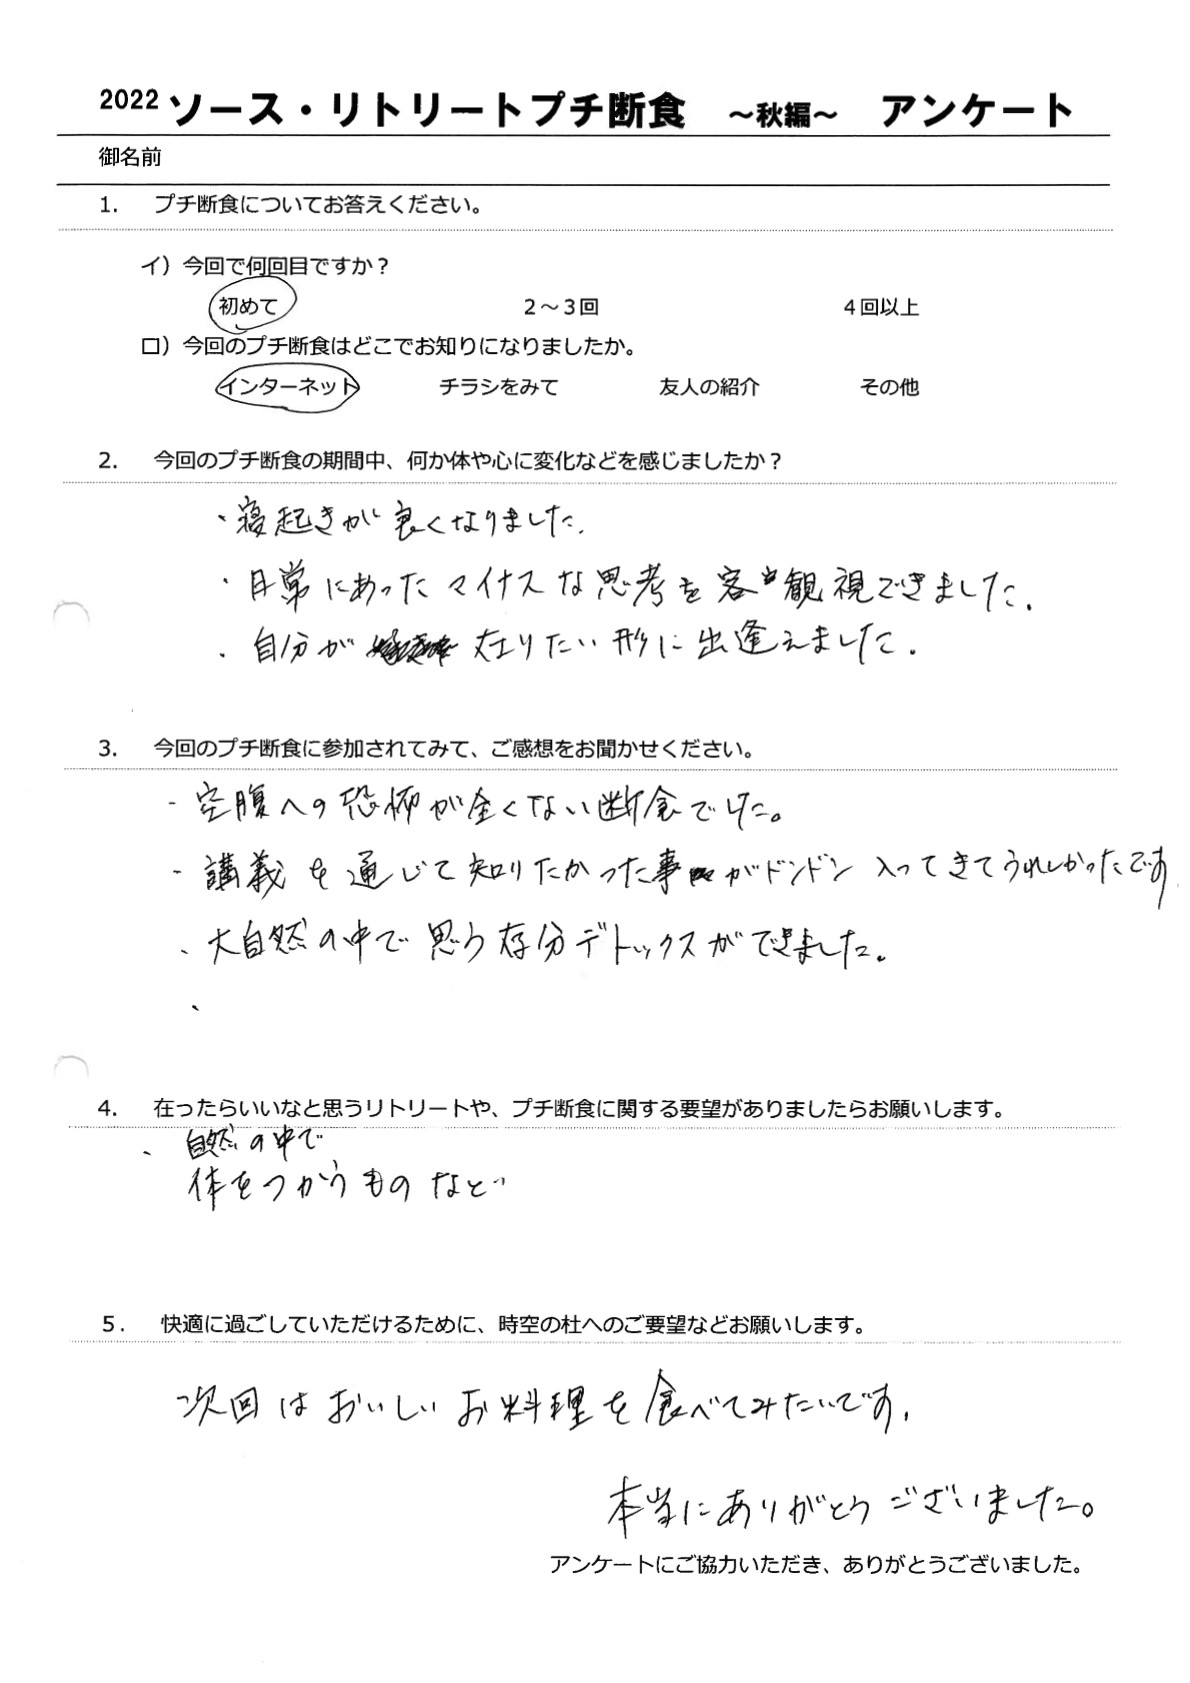 2022 ソース・リトリートプチ断食 ～秋編～ アンケート
御名前
1. プチ断食についてお答えください。
イ）今回で何回目ですか？
初めて 2～3回 4回以上
ロ）今回のプチ断食はどこでお知りになりましたか。
インターネット チラシをみて 友人の紹介 その他
2. 今回のプチ断食の期間中、何か体や心に変化などを感じましたか？
・寝起きが良くなりました.
・日常にあったマイナスな思考を客観視できました.
・自分が 在りたい形に出逢えました.
3. 今回のプチ断食に参加されてみて、ご感想をお聞かせください。
- 空腹への恐怖が全くない断食でした。
- 講義を通じて知りたかった事がドンドン入ってきてうれしかったです
、大自然の中で思う存分デトックスができました。
、
4. 在ったらいいなと思うリトリートや、プチ断食に関する要望がありましたらお願いします。
、自然の中で
体をつかうものなど
5. 快適に過ごしていただけるために、時空の杜へのご要望などお願いします。
次回はおいしいお料理を食べてみたいです,
本当にありがとうございました。
アンケートにご協力いただき、ありがとうございました。